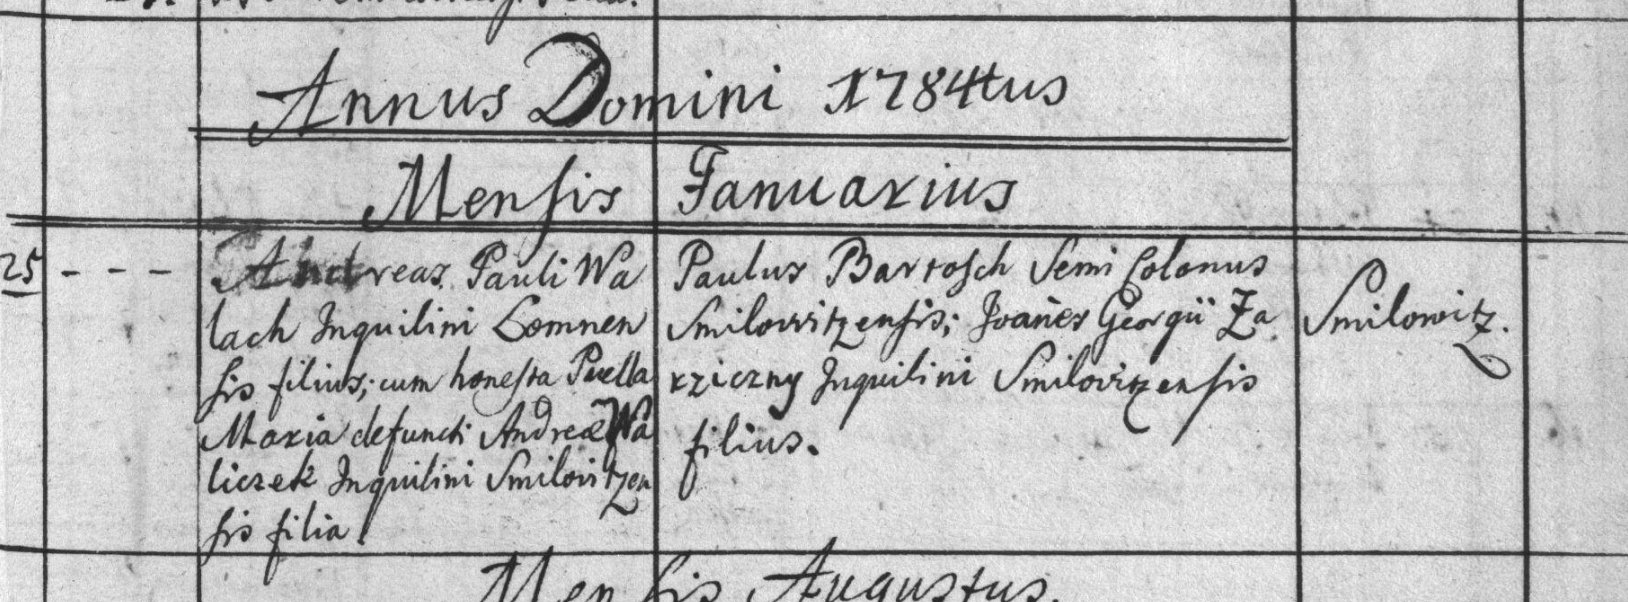 Annus Domini 1784tus
Mensis Januarius
25 - - - Andreas Pauli Wa
lach Inquilini Lomnen
sis filius; cum honesta Puella
Maria defuncti Andreæ Wa
liczek Inquilini Smilovitzen
sis filia.
Paulus Bartosch Semi Colonus
Smilowitzensis; Joañes Georgii Za
rziczny Inquilini Smilovitzensis
filius.
Smilowitz.
Mensis Augustus.